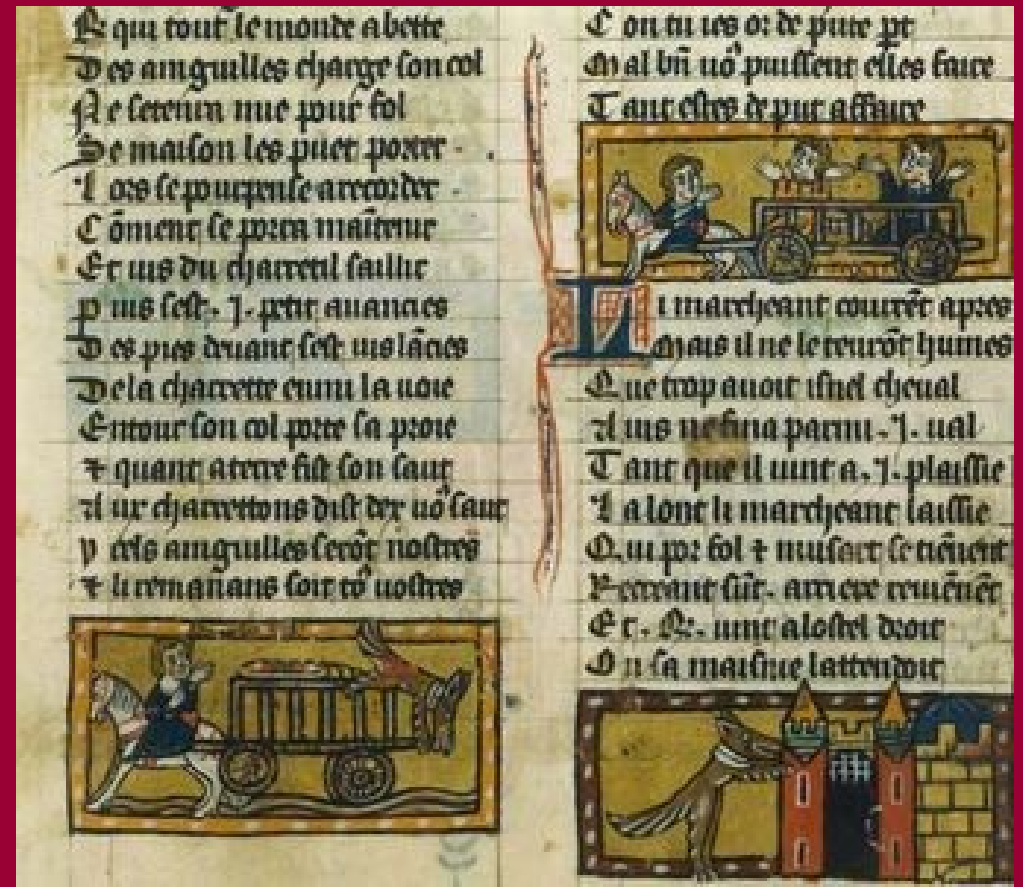 R qui tout le monde abette
Des amguilles charge son col
Ne mie pour fol
Se maison les puet porter
Lors se pourpense arrecorder
Cõment se porra
Et du charretil saillir
Puis sest .j. petit auancies
Des pies deuant sest lãcies
De la charrette enmi la uoie
Entour son col porte sa proie
⁊ quant aterre fist son saut
Aux charrettons dist dex uoˢ saut
y cels amguilles serõt nostres
⁊ li remanans soit toˢ uostres
Mal bñ uoˢ puissent elles faire
Tant estes de put affaire
Li marcheant courẽt apres
Mais il ne le tenrõt humes
Que trop auoit isnel cheual
Ains ne fina parmi .j. ual
Tant que il uint a .j. plaissie
La lont li marcheant laissie
Qui por fol ⁊ musart se tienent
Recreant sũt arriere reuienẽt
Et .R. uint alostel droit
On sa maisnie lattendoit